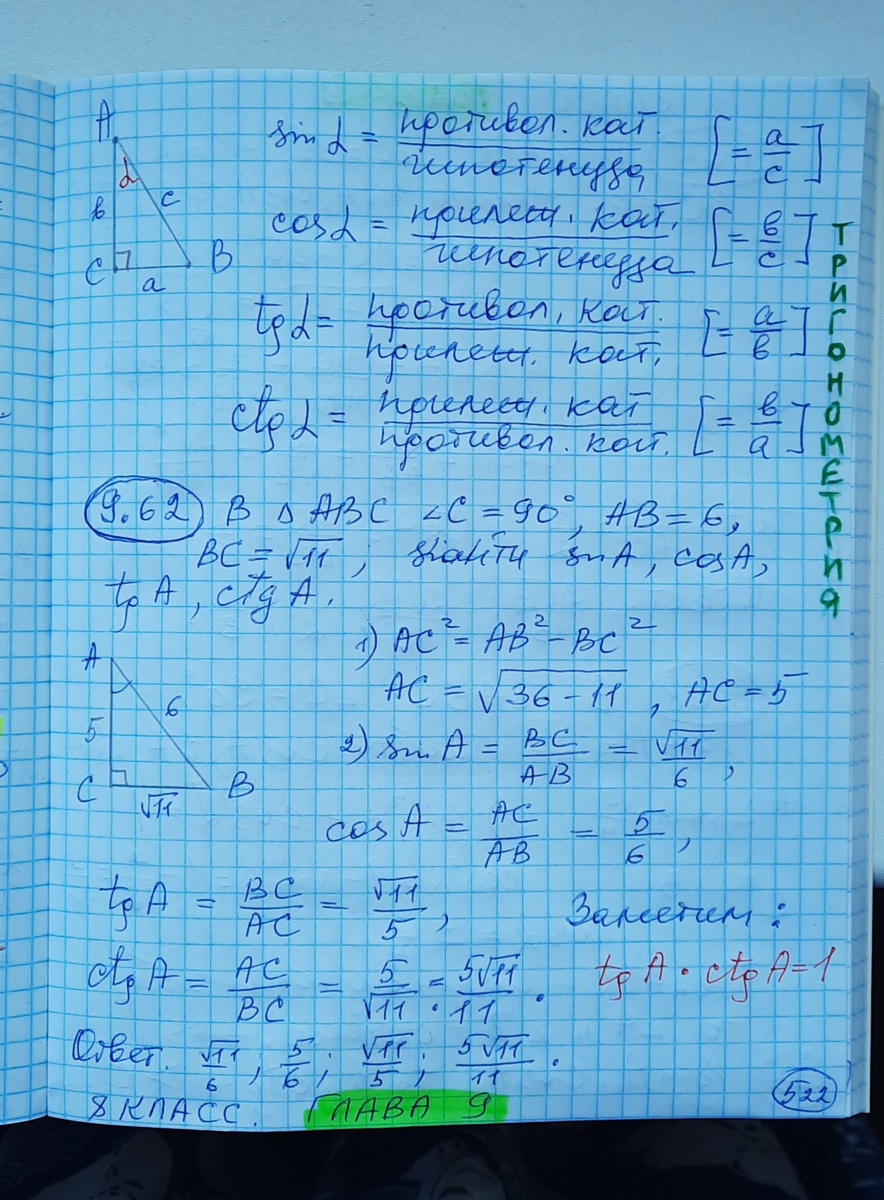 A
α
в
c
C
a
B
sin α = противол. кат. / гипотенуза [= a/c]
cos α = прилеж. кат. / гипотенуза [= в/c]
tg α = противол. кат. / прилеж. кат. [= a/в]
ctg α = прилеж. кат / противол. кат. [= в/a]
ТРИГОНОМЕТРИЯ
9.62 В △ ABC ∠C = 90°, AB = 6,
BC = √11; найти sin A, cos A,
tg A, ctg A.
A
5
6
C
√11
B
1) AC² = AB² − BC²
AC = √36 − 11, AC = 5
2) sin A = BC/AB = √11/6,
cos A = AC/AB = 5/6,
tg A = BC/AC = √11/5,
Заметим:
ctg A = AC/BC = 5/√11 = 5√11/11.
tg A · ctg A = 1
Ответ. √11/6; 5/6; √11/5; 5√11/11.
8 КЛАСС. ГЛАВА 9
522